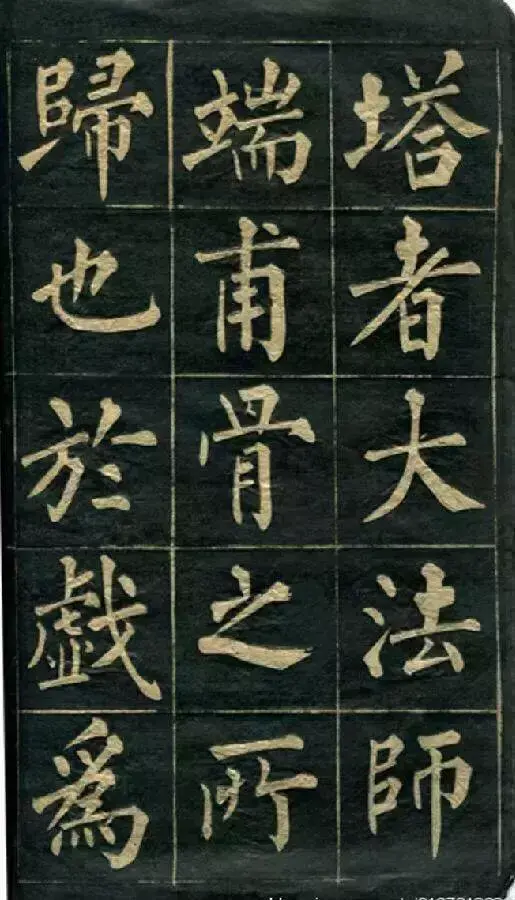 塔者大法師
端甫骨之所
歸也於戲爲